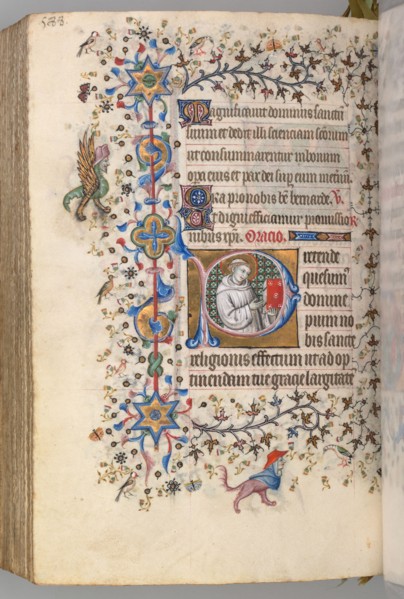 533.
Magnificavit dominus sanctu
suum et dedit illi scienciam
ut consummarentur in bonum
opa eius et pax dei sup eum
Ora pro nobis be bernarde. V.
Ut digni efficiamur promissio
nibus xpi. Oracio.
Pretende
quesum
domine
pium no
bis sancte
religionis effectum ut ad op
tinendam tue gracie largitate